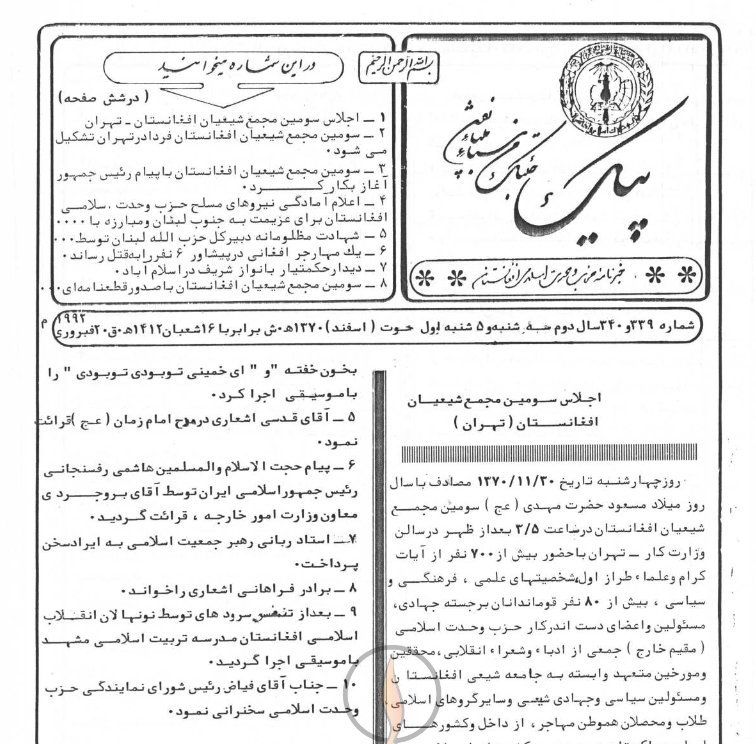 بسم الله الرحمن الرحیم
پیک
خبرنامه حزب وحدت اسلامی افغانستان
دراین شماره میخوانید
( درشش صفحه )
۱ ــ اجلاس سومین مجمع شیعیان افغانستان ـ تهران
۲ ــ سومین مجمع شیعیان افغانستان فردا درتهران تشکیل
می شود.
۳ ــ سومین مجمع شیعیان افغانستان باپیام رئیس جمهور
آغاز بکار کــــرد.
۴ ــ اعلام آمادگی نیروهای مسلح حزب وحدت .سلامی
افغانستان برای عزیمت به جنوب لبنان ومبارزه با ....
۵ ــ شهادت مظلومانه دبیرکل حزب الله لبنان توسط...
۶ ــ یك مهاجر افغانی درپیشاور ۶ نفررابه قتل رساند.
۷ ــ دیدارحکمتیار بانواز شریف دراسلام آباد.
۸ ــ سومین مجمع شیعیان افغانستان باصدورقطعنامه ای...
شماره ۳۳۹و۳۴۰سال دوم سه شنبه و۵ شنبه اول حوت ( اسفند ) ۱۳۷۰ه.ش برابربا ۱۶شعبان۱۴۱۲ه.ق.۲۰فبروری ۱۹۹۲ م
اجلاس سومین مجمع شیعیان
افغانستان ( تهران )
روزچهارشنبه تاریخ ۱۳۷۰/۱۱/۳۰ مصادف باسال
روز میلاد مسعود حضرت مهدی ( عج ) سومین مجمع
شیعیان افغانستان درساعت ۳/۵ بعداز ظهر درسالن
وزارت کار ــ تهران باحضور بیش از ۷۰۰ نفر از آیات
کرام وعلماء طراز اول،شخصیتهای علمی ، فرهنگی و
سیاسی ، بیش از ۸۰ نفر قوماندانان برجسته جهادی،
مسئولین واعضای دست اندرکار حزب وحدت اسلامی
( مقیم خارج ) جمعی از ادباء وشعراء انقلابی،محققین
ومورخین متعهد وابسته به جامعه شیعی افغانستان
ومسئولین سیاسی وجهادی شیعی وسایرگروهای اسلامی
طلاب ومحصلان هموطن مهاجر، از داخل وکشورهای
بخون خفته "و " ای خمینی توبودی توبودی " را
باموسیقی اجرا کرد.
۵ ــ آقای قدسی اشعاری درمدح امام زمان ( عج )قرائت
نمود.
۶ ــ پیام حجت الاسلام والمسلمین هاشمی رفسنجانی
رئیس جمهوراسلامی ایران توسط آقای بروجردی
معاون وزارت امور خارجه ، قرائت گردید.
۷ــ استاد ربانی رهبر جمعیت اسلامی به ایرادسخن
پرداخت.
۸ ــ برادر فراهانی اشعاری راخواند.
۹ ــ بعداز تنفس سرود های توسط نونهالان انقلاب
اسلامی افغانستان مدرسه تربیت اسلامی مشهد
باموسیقی اجرا گردید.
۱۰ ــ جناب آقای فیاض رئیس شورای نمایندگی حزب
وحدت اسلامی سخنرانی نمود.